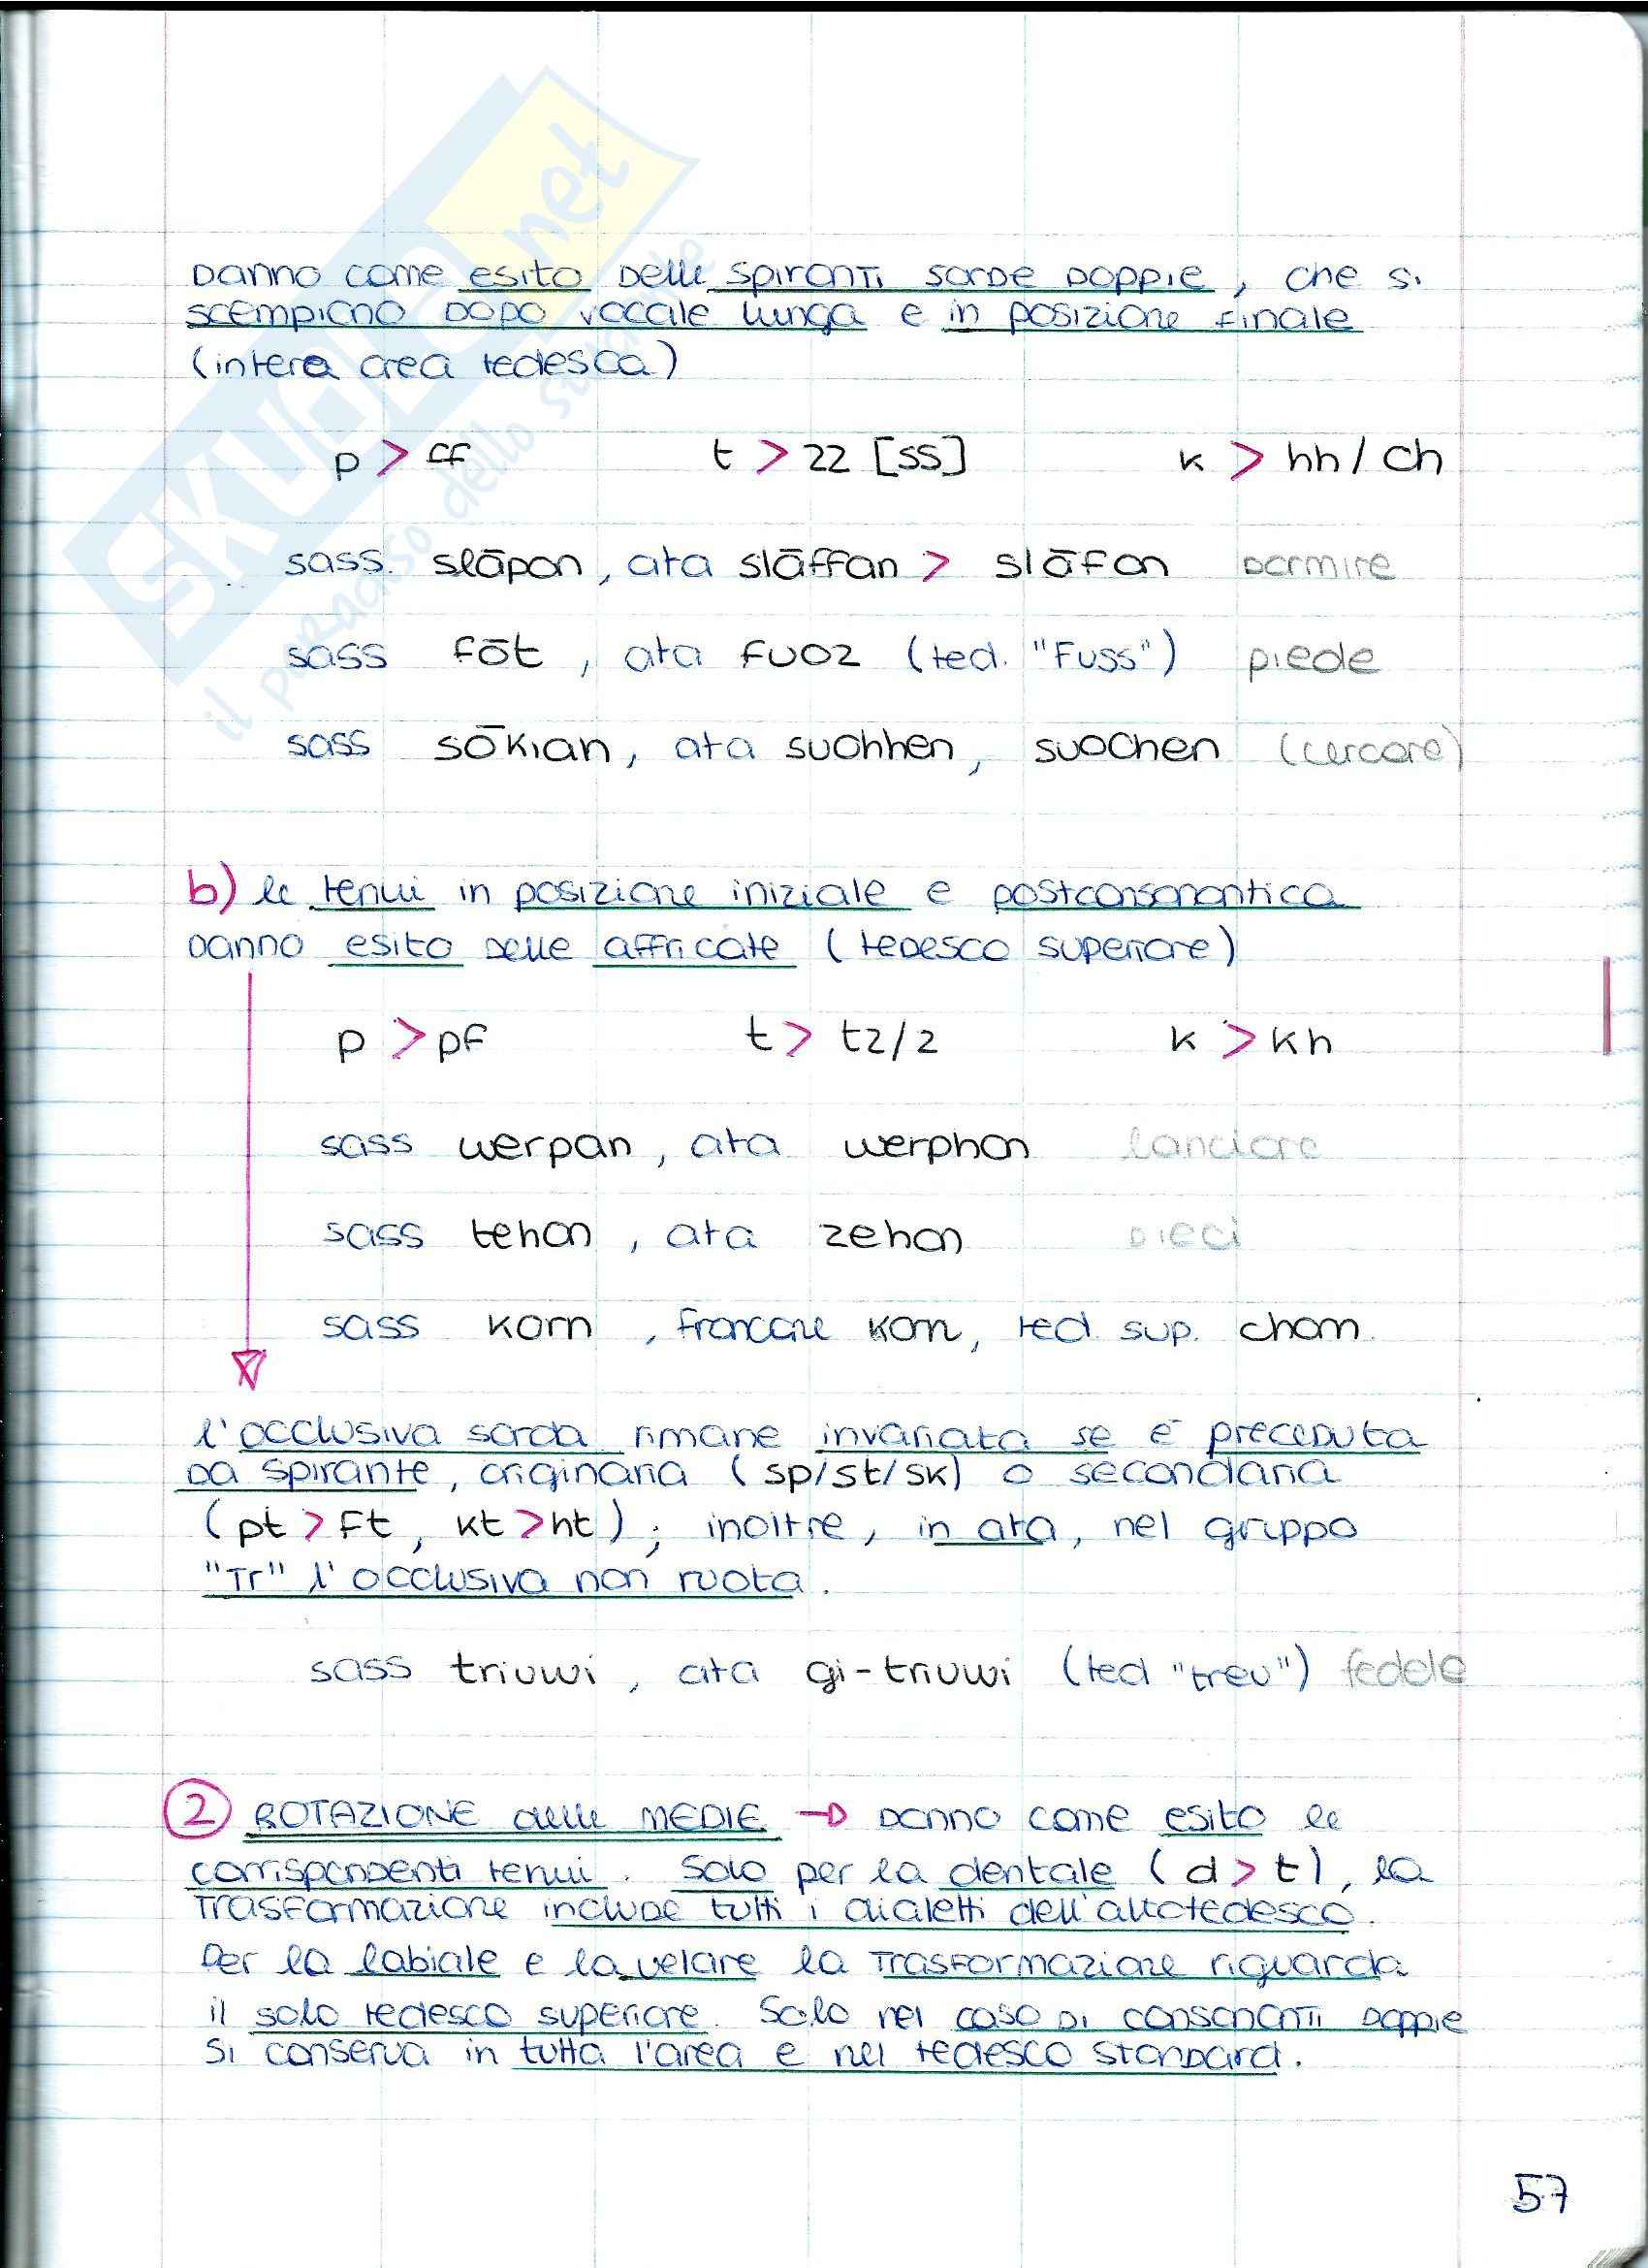 danno come esito delle spiranti sorde doppie, che si
scempiano dopo vocale lunga e in posizione finale
(intera area tedesca)
p > ff t > zz [ss] k > hh / ch
sass. slāpan, ata slāffan > slāfan dormire
sass fōt, ata fuoz (ted. "Fuss") piede
sass sōkian, ata suohhen, suochen (cercare)
b) le tenui in posizione iniziale e postconsonantica
danno esito delle affricate (tedesco superiore)
p > pf t > tz/z k > kh
sass werpan, ata werphan lanciare
sass tehan, ata zehan dieci
sass korn, francone korn, ted. sup. chorn.
l'occlusiva sorda rimane invariata se è preceduta
da spirante, originaria (sp/st/sk) o secondaria
(pt > ft, kt > ht); inoltre, in ata, nel gruppo
"Tr" l'occlusiva non ruota.
sass triuwi, ata gi-triuwi (ted "treu") fedele
2 ROTAZIONE delle MEDIE → danno come esito le
corrispondenti tenui. Solo per la dentale (d > t), la
trasformazione include tutti i dialetti dell'altotedesco.
Per la labiale e la velare la trasformazione riguarda
il solo tedesco superiore. Solo nel caso di consonanti doppie
si conserva in tutta l'area e nel tedesco standard.
57
SKUOLA.net
il paradiso dello studente